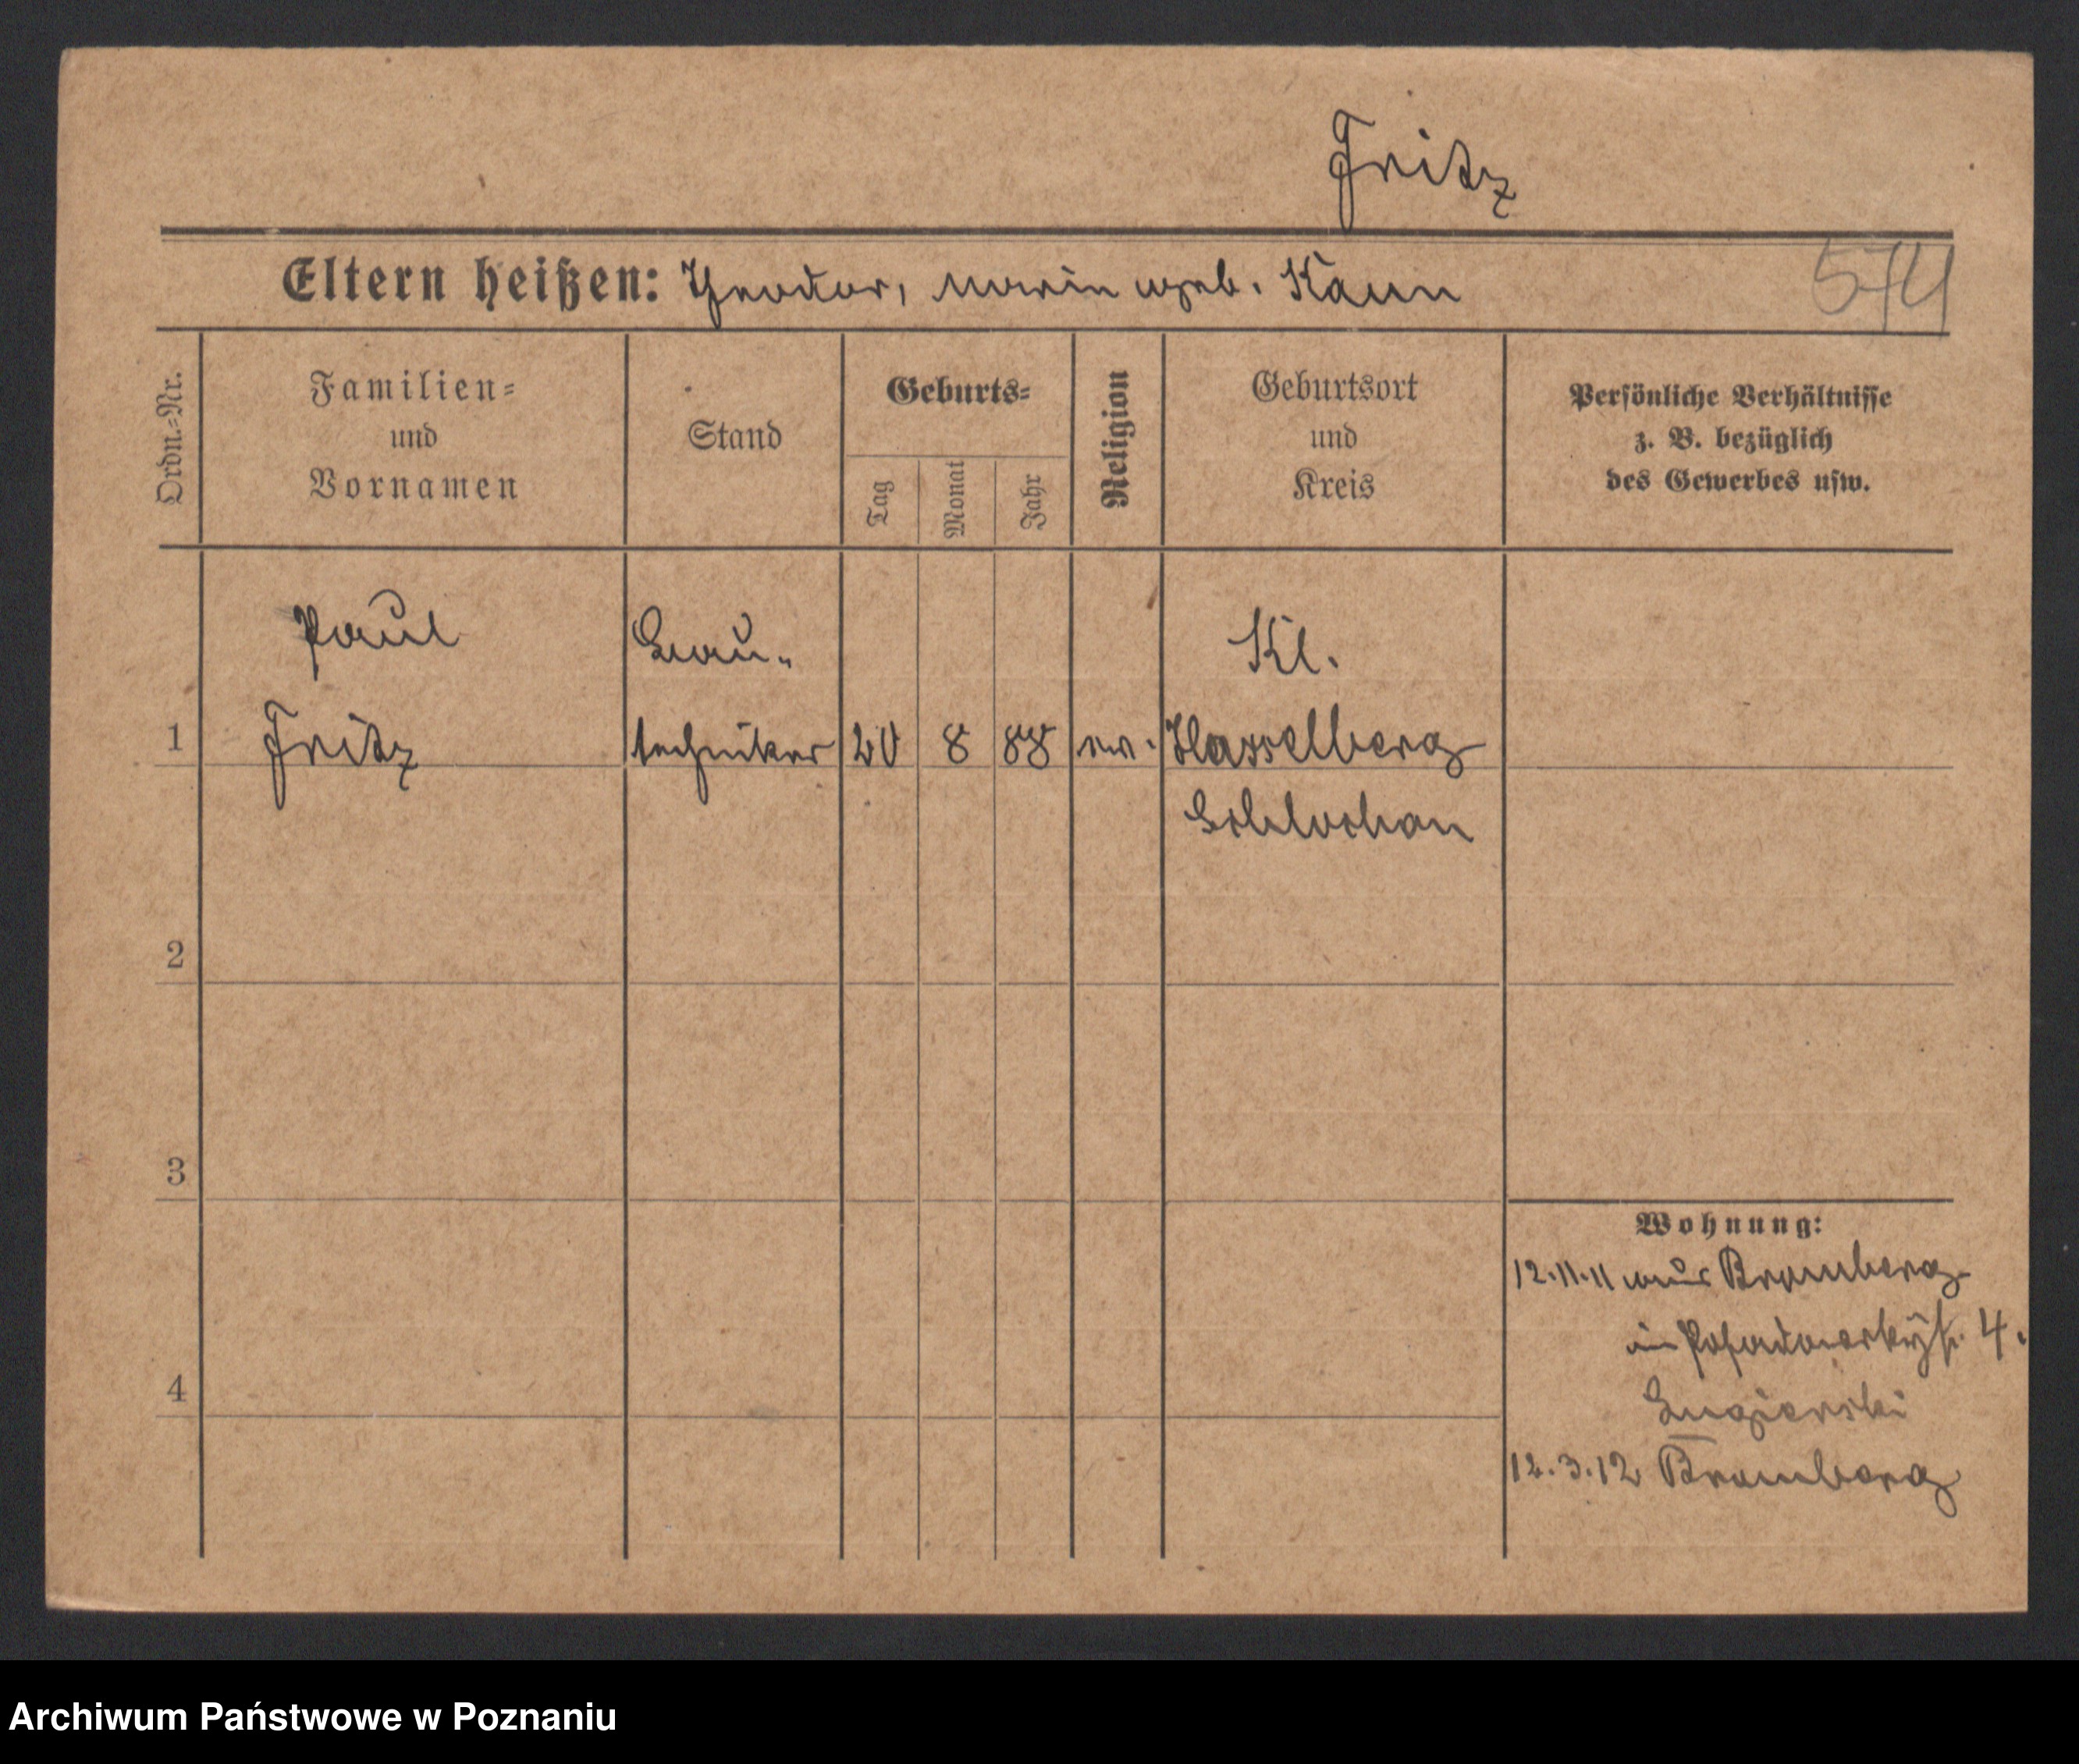 Fritz
Eltern heißen: Theodor, Marie geb. Kann
574
Ordn.-Nr.
Familien-
und
Vornamen
Stand
Geburts-
Tag
Monat
Jahr
Religion
Geburtsort
und
Kreis
Persönliche Verhältnisse
z. B. bezüglich
des Gewerbes usw.
Paul
Bau-
Kl.
1 Fritz techniker 20 8 88 ev. Hasselberg
Schlochau
2
3
Wohnung:
12.11.11 aus Bromberg
in Posadowskystr. 4.
4
12.3.12 Bromberg
Archiwum Państwowe w Poznaniu